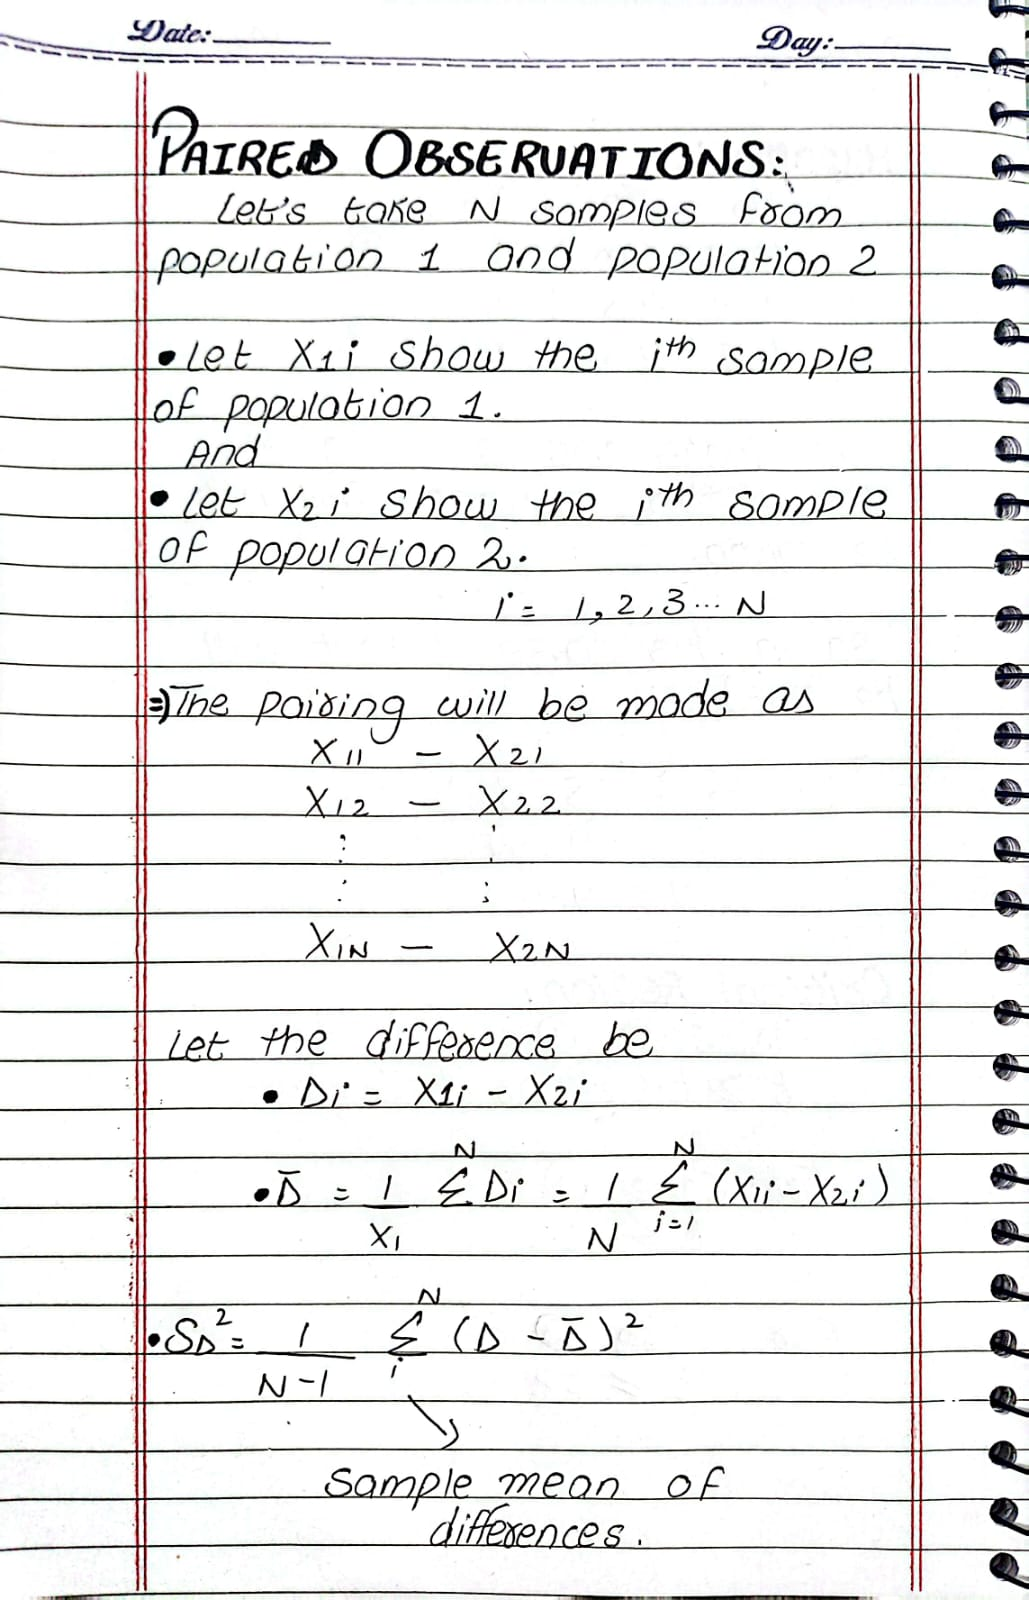 Date:
Day:
PAIRED OBSERVATIONS:
Let's take N samples from
population 1 and population 2
• Let X1i show the ith sample
of population 1.
And
• Let X2i show the ith sample
of population 2.
i = 1, 2, 3... N
⇒ The pairing will be made as
X11 – X21
X12 – X22
⋮ ⋮
X1N – X2N
Let the difference be
• Di = X1i - X2i
• D̄ = 1/X1 Σ^N Di = 1/N Σ^N i=1 (X1i - X2i)
• SD² = 1/N-1 Σ^N i (D - D̄)²
↘
Sample mean of
differences.